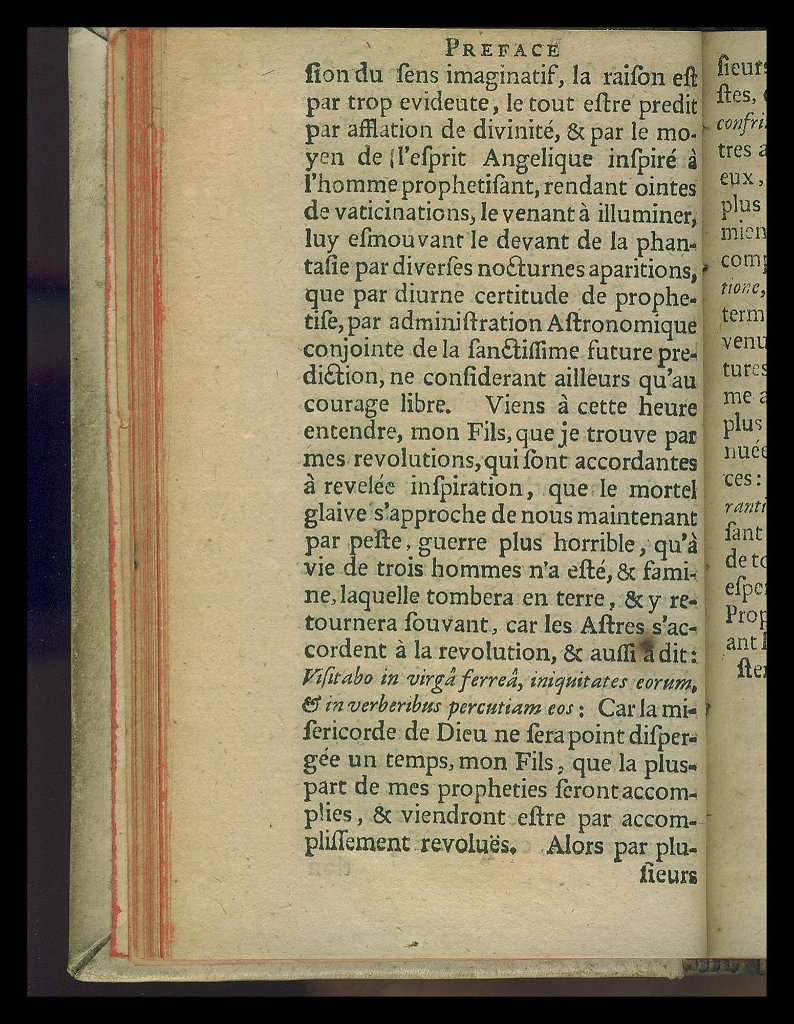 PREFACE
ſion du ſens imaginatif, la raiſon eſt
par trop evideute, le tout eſtre predit
par afflation de divinité, & par le mo-
yen de l'eſprit Angelique inſpiré à
l'homme prophetiſant, rendant ointes
de vaticinations, le venant à illuminer,
luy eſmouvant le devant de la phan-
taſie par diverſes nocturnes aparitions,
que par diurne certitude de prophe-
tiſe, par adminiſtration Aſtronomique
conjointe de la ſanctiſſime future pre-
diction, ne conſiderant ailleurs qu'au
courage libre. Viens à cette heure
entendre, mon Fils, que je trouve par
mes revolutions, qui ſont accordantes
à revelée inſpiration, que le mortel
glaive s'approche de nous maintenant
par peſte, guerre plus horrible, qu'à
vie de trois hommes n'a eſté, & fami-
ne, laquelle tombera en terre, & y re-
tournera ſouvant, car les Aſtres s'ac-
cordent à la revolution, & auſſi a dit:
Viſitabo in virgâ ferreâ, iniquitates eorum,
& in verberibus percutiam eos: Car la mi-
ſericorde de Dieu ne ſera point diſper-
gée un temps, mon Fils, que la plus-
part de mes propheties ſeront accom-
plies, & viendront eſtre par accom-
pliſſement revoluës. Alors par plu-
ſieurs
ſieurs
ſtes,
confri
tres a
eux,
plus
mien
comp
tione,
term
venu
tures
me a
plus
nuée
ces:
ranti
ſant
de to
eſper
Prop
ant
ſte